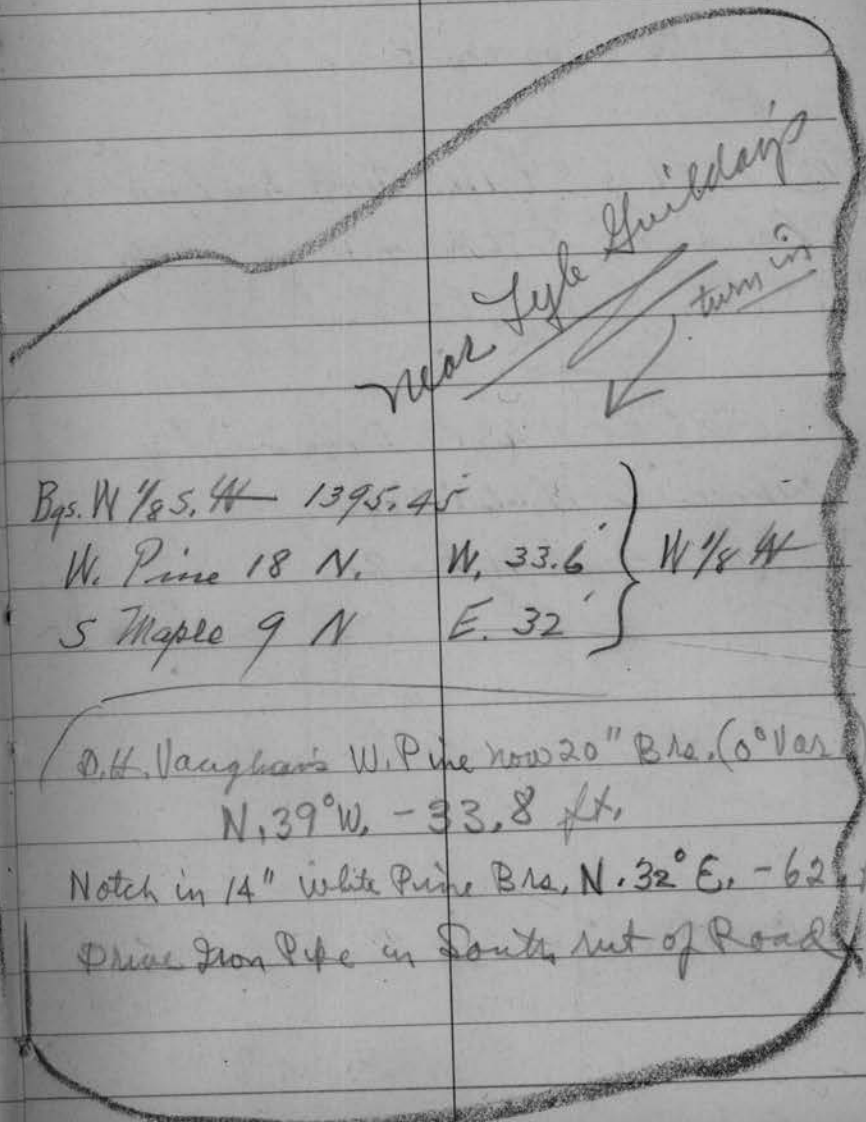 near Lyle Guilday's
turn in
Bgs. W 1/8 S. W 1395.45'
W. Pine 18 N. W. 33.6' } W 1/8 W
S Maple 9 N E. 32'
D.H. Vaughan's W. Pine now 20" Brs. (0° Var
N. 39° W. - 33.8 ft.
Notch in 14" white Pine Brs. N. 32° E. - 62.
Drive Iron Pipe in South rut of Road